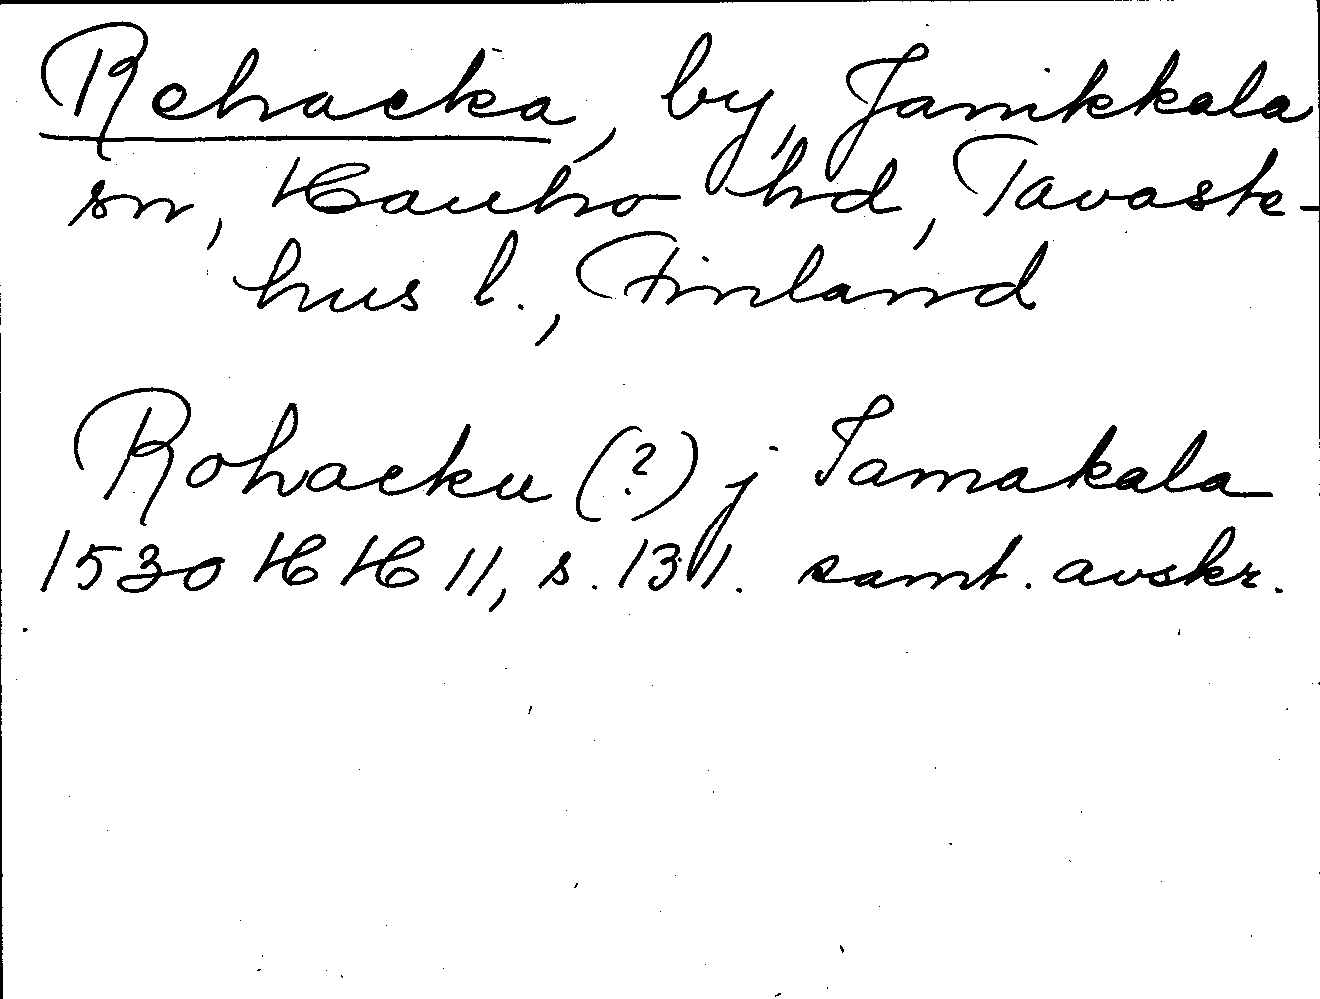 Rehacka, by, Janikkala
sn, Hauho hd, Tavaste-
hus l., Finland
Rohacku (?) j Tamakala
1530 HH 11, s. 131. samt. avskr.